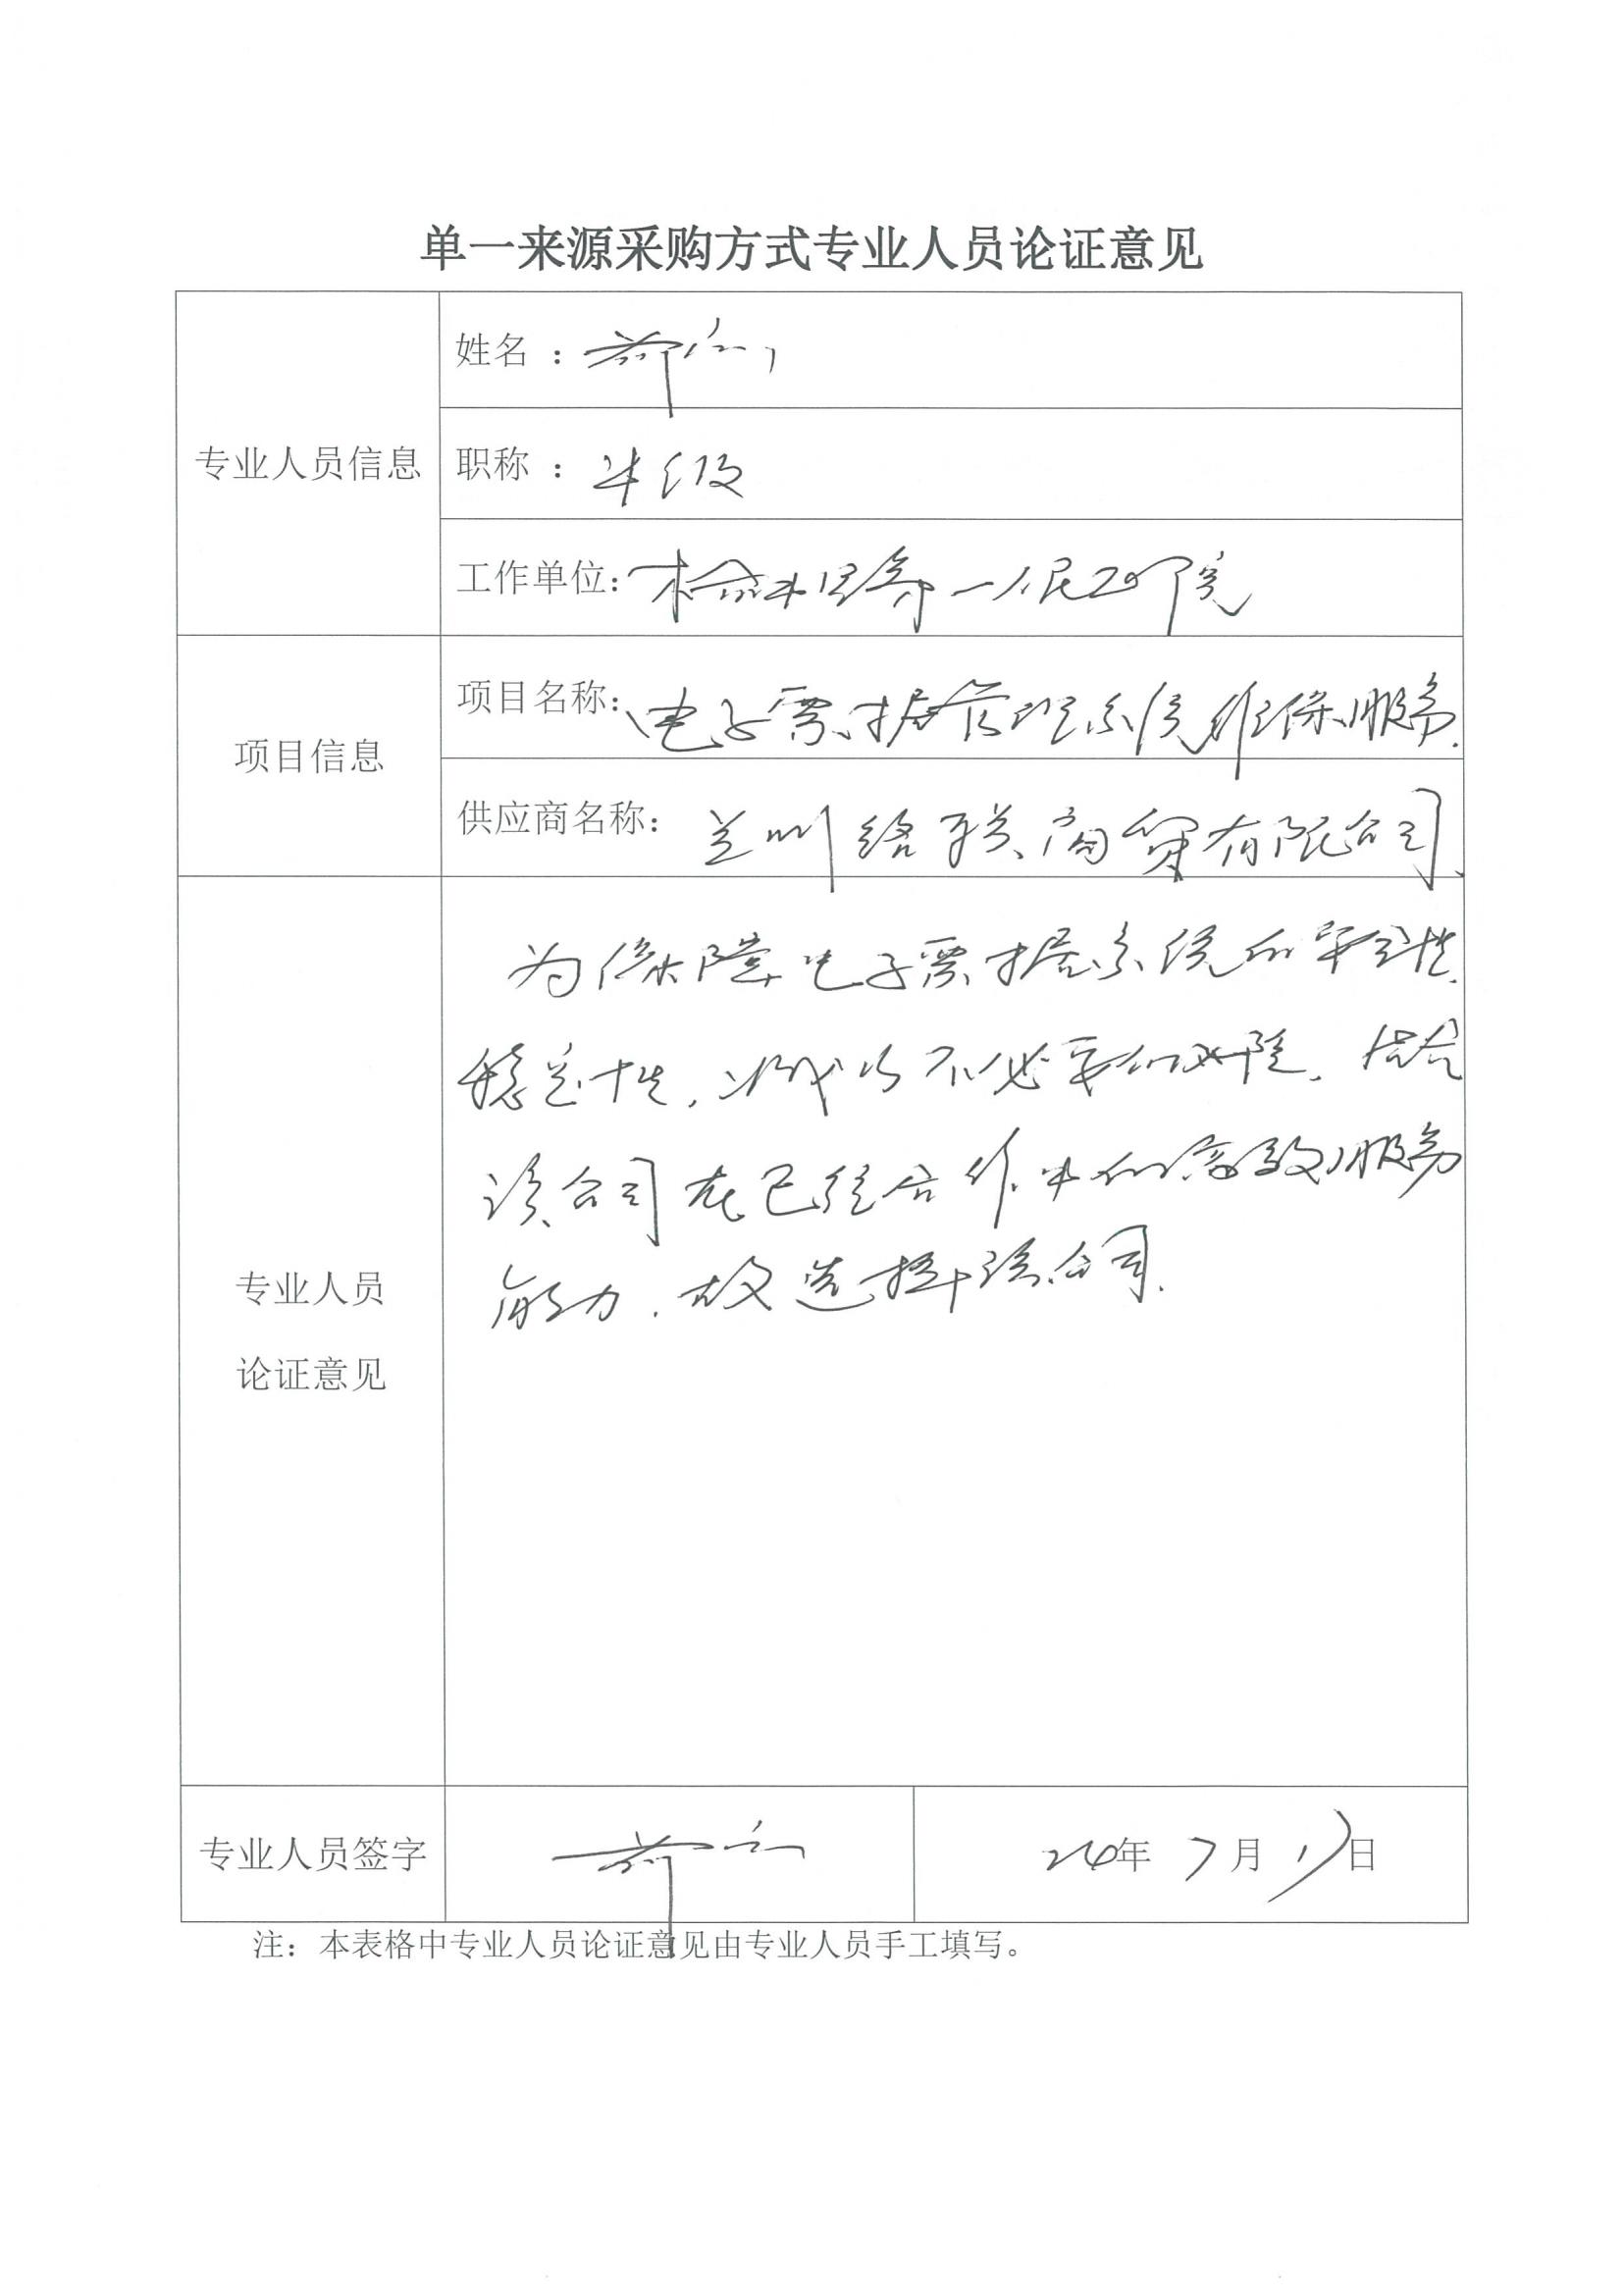 单一来源采购方式专业人员论证意见
专业人员信息
姓名：
职称：中级
工作单位：榆中县第一人民医院
项目信息
项目名称：电子票据管理系统维保服务.
供应商名称：兰州络联商贸有限公司.
专业人员
论证意见
为保障电子票据系统的安全性.
稳定性，减少不必要的风险，结合
该公司在已经合作中的高效服务
能力，故选择该公司.
专业人员签字
24年7月17日
注：本表格中专业人员论证意见由专业人员手工填写。